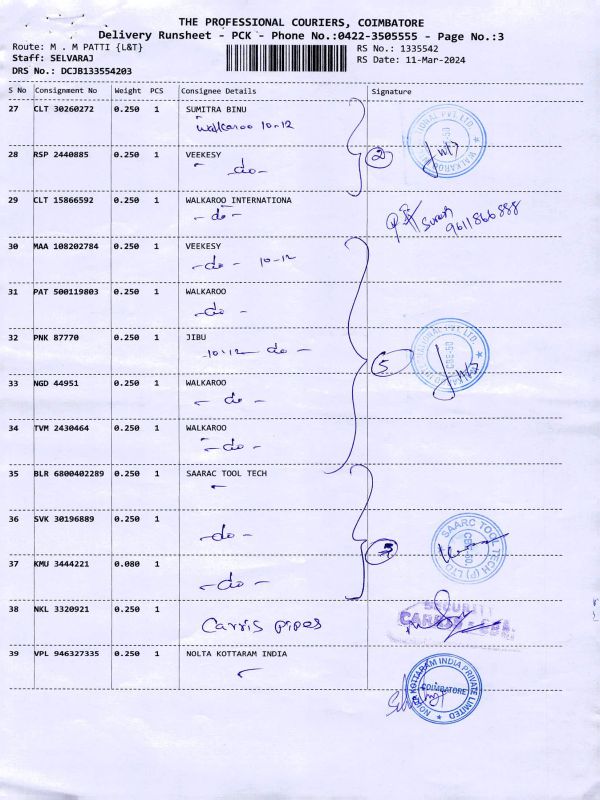 THE PROFESSIONAL COURIERS, COIMBATORE
Delivery Runsheet - PCK - Phone No.:0422-3505555 - Page No.:3
Route: M . M PATTI {L&T}
RS No.: 1335542
Staff: SELVARAJ
RS Date: 11-Mar-2024
DRS No.: DCJB133554203
S No Consignment No Weight PCS Consignee Details Signature
27 CLT 30260272 0.250 1 SUMITRA BINU
Walkaroo 10-12
28 RSP 2440885 0.250 1 VEEKESY
- do -
2
29 CLT 15866592 0.250 1 WALKAROO INTERNATIONA
- do -
Suresh 9611866888
30 MAA 108202784 0.250 1 VEEKESY
- do - 10-12
31 PAT 500119803 0.250 1 WALKAROO
- do -
32 PNK 87770 0.250 1 JIBU
10-12 - do -
5
33 NGD 44951 0.250 1 WALKAROO
- do -
34 TVM 2430464 0.250 1 WALKAROO
- do -
35 BLR 6800402289 0.250 1 SAARAC TOOL TECH
36 SVK 30196889 0.250 1
- do -
SAARC TOOL TECH (P) LTD
CBE-50
37 KMU 3444221 0.080 1
- do -
38 NKL 3320921 0.250 1
Carris pipes
SECURITY
39 VPL 946327335 0.250 1 NOLTA KOTTARAM INDIA
NOLTA KOTTARAM INDIA PRIVATE LIMITED
COIMBATORE